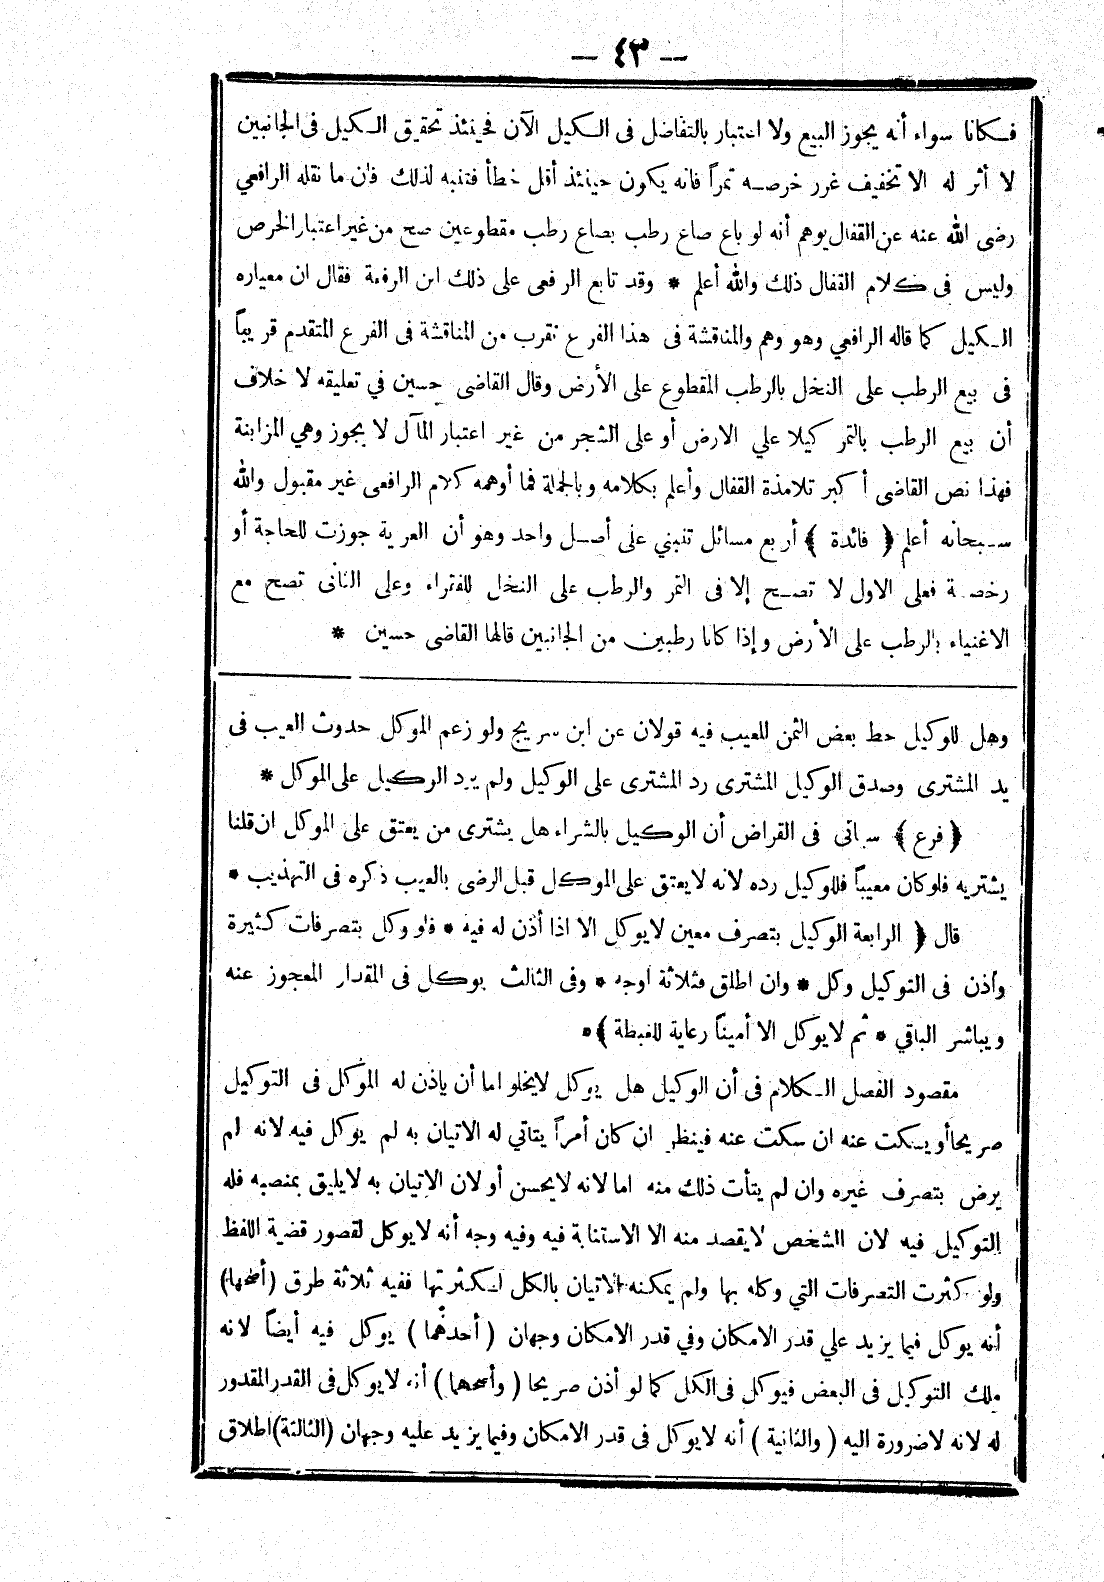 -- ٤٣ --
فكانا سواء أنه يجوز البيع ولا اعتبار بالتفاضل فى الكيل الآن فحينئذ تحقيق الكيل فى الجانبين
لا أثر له الا تخفيف غرر خرصه تمراً فانه يكون حينئذ أقل خطأ فتنبه لذلك فان ما نقله الرافعي
رضى الله عنه عن القفال يوهم أنه لو باع صاع رطب بصاع رطب مقطوعين صح من غير اعتبار الخرص
وليس فى كلام القفال ذلك والله أعلم * وقد تابع الرفعى على ذلك ابن الرفعة فقال ان معياره
الكيل كما قاله الرافعي وهو وهم والمناقشة فى هذا الفرع تقرب من المناقشة فى الفرع المتقدم قريباً
فى بيع الرطب على النخل بالرطب المقطوع على الأرض وقال القاضى حسين في تعليقه لا خلاف
أن بيع الرطب بالتمر كيلا علي الارض أو على الشجر من غير اعتبار المآل لا يجوز وهي المزابنة
فهذا نص القاضى أكبر تلامذة القفال وأعلم بكلامه وبالجملة فما أوهمه كلام الرافعى غير مقبول والله
سبحانه أعلم ﴿ فائدة ﴾ أربع مسائل تنبني على أصل واحد وهو أن العرية جوزت للحاجة أو
رخصة فعلى الاول لا تصح إلا فى التمر والرطب على النخل للفقراء وعلى الثانى تصح مع
الاغنياء بالرطب على الأرض وإذا كانا رطبين من الجانبين قالها القاضى حسين *
وهل للوكيل حط بعض الثمن للعيب فيه قولان عن ابن سريج ولو زعم الموكل حدوث العيب فى
يد المشترى وصدق الوكيل المشترى رد المشترى على الوكيل ولم يرد الوكيل على الموكل *
﴿ فرع ﴾ سيأتى فى القراض أن الوكيل بالشراء هل يشترى من يعتق على الموكل ان قلنا
يشتريه فلو كان معيباً فللوكيل رده لانه لا يعتق على الموكل قبل الرضى بالعيب ذكره فى التهذيب *
قال ﴿ الرابعة الوكيل بتصرف معين لا يوكل الا اذا أذن له فيه * فلو وكل بتصرفات كثيرة
وأذن فى التوكيل وكل * وان اطلق فثلاثة اوجه * وفى الثالث يوكل فى المقدار المعجوز عنه
ويباشر الباقي * ثم لا يوكل الا أميناً رعاية للغبطة ﴾ *
مقصود الفصل الكلام فى أن الوكيل هل يوكل لا يخلو اما أن يأذن له الموكل فى التوكيل
صريحا أو يسكت عنه ان سكت عنه فينظر ان كان أمراً يتأتي له الاتيان به لم يوكل فيه لانه لم
يرض بتصرف غيره وان لم يتأت ذلك منه اما لانه لا يحسن أو لان الاتيان به لا يليق بمنصبه فله
التوكيل فيه لان الشخص لا يقصد منه الا الاستنابة فيه وفيه وجه أنه لا يوكل لقصور قضية اللفظ
ولو كثرت التصرفات التي وكله بها ولم يمكنه الاتيان بالكل لكثرتها ففيه ثلاثة طرق (أصحها)
أنه يوكل فيما يزيد علي قدر الامكان وفي قدر الامكان وجهان (أحدهما) يوكل فيه أيضاً لانه
ملك التوكيل فى البعض فيوكل فى الكل كما لو أذن صريحا (وأصحهما) أنه لا يوكل فى القدر المقدور
له لانه لا ضرورة اليه (والثانية) أنه لا يوكل فى قدر الامكان وفيما يزيد عليه وجهان (الثالثة) اطلاق